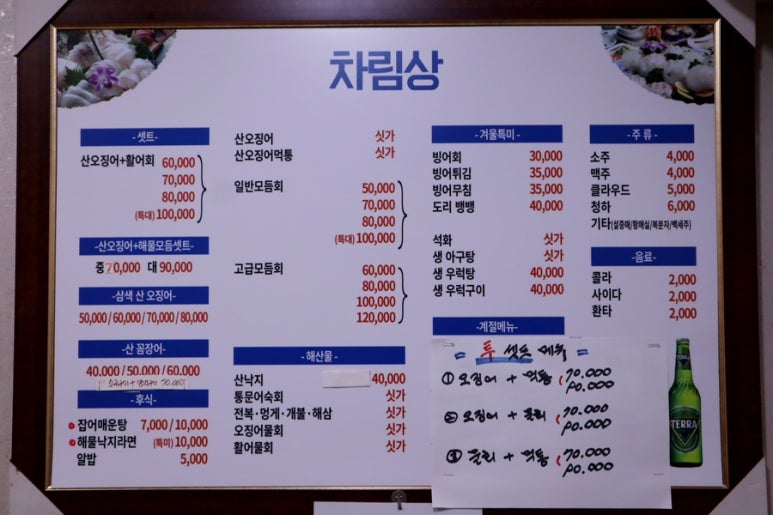 차림상
-셋트-
산오징어+활어회 60,000
70,000
80,000
(특대) 100,000
-산오징어+해물모듬셋트-
중 70,000 대 90,000
-삼색 산 오징어-
50,000 / 60,000 / 70,000 / 80,000
-산 꼼장어-
40,000 / 50,000 / 60,000
-후식-
잡어매운탕 7,000 / 10,000
해물낙지라면 (특미) 10,000
알밥 5,000
산오징어 싯가
산오징어먹통 싯가
일반모듬회 50,000
70,000
80,000
(특대) 100,000
고급모듬회 60,000
80,000
100,000
120,000
-해산물-
산낙지 40,000
통문어숙회 싯가
전복·멍게·개불·해삼 싯가
오징어물회 싯가
활어물회 싯가
-겨울특미-
빙어회 30,000
빙어튀김 35,000
빙어무침 35,000
도리 뱅뱅 40,000
석화 싯가
생 아구탕 싯가
생 우럭탕 40,000
생 우럭구이 40,000
-계절메뉴-
= 투 셋트 메뉴 =
① 오징어 + 먹통 (70.000
90.000
② 오징어 + 돌리 (70.000
90.000
③ 돌리 + 먹통 (70.000
90.000
-주 류-
소주 4,000
맥주 4,000
클라우드 5,000
청하 6,000
기타(설중매/황매실/복분자/백세주)
-음료-
콜라 2,000
사이다 2,000
환타 2,000
TERRA